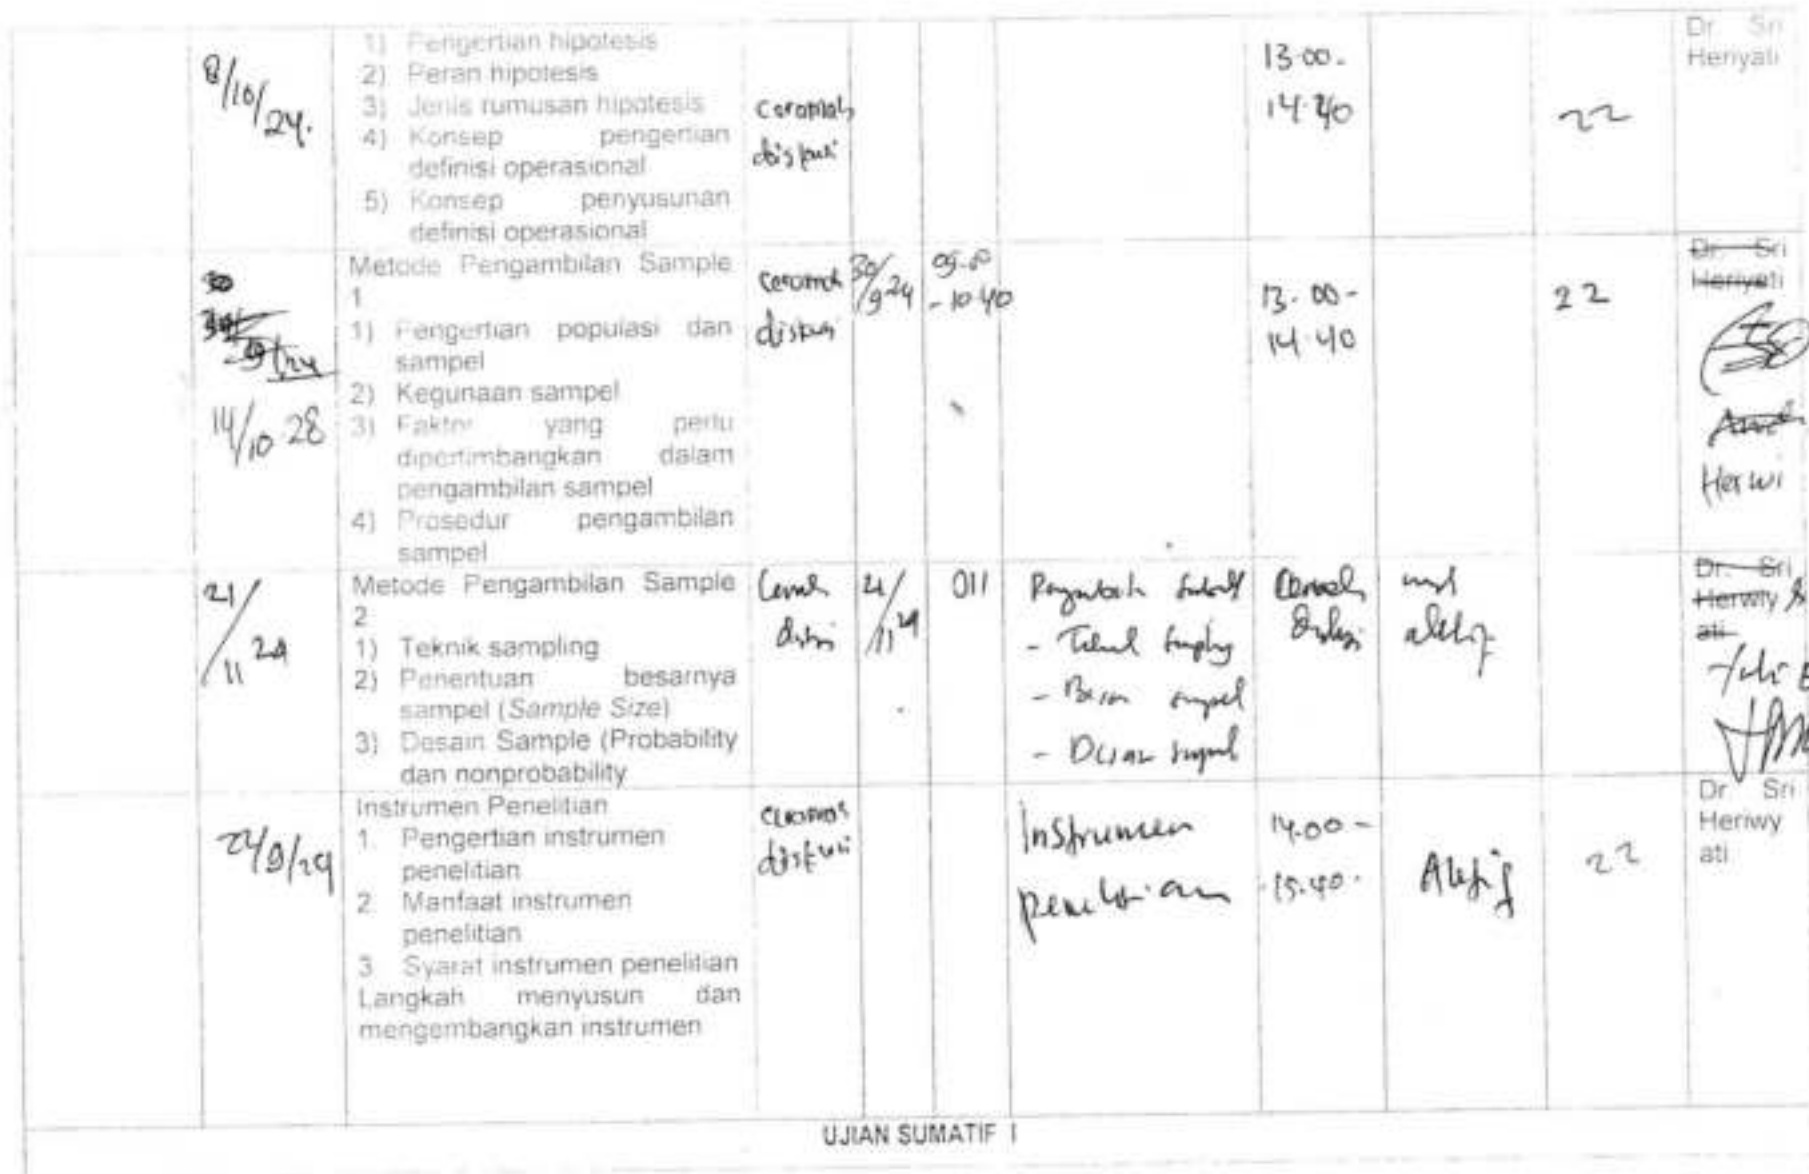 8/10/24.
1) Pengertian hipotesis
2) Peran hipotesis
3) Jenis rumusan hipotesis
4) Konsep pengertian
definisi operasional
5) Konsep penyusunan
definisi operasional
ceramah
diskusi
13.00-
14.40
22
Dr Sri
Heriyati
30
9/24
14/10 28
Metode Pengambilan Sample
1
1) Pengertian populasi dan
sampel
2) Kegunaan sampel
3) Faktor yang perlu
dipertimbangkan dalam
pengambilan sampel
4) Prosedur pengambilan
sampel
ceramah
diskusi
30/9 24
09.00
- 10.40
13.00-
14.40
22
Dr. Sri
Heriyati
Herwi
21/11 24
Metode Pengambilan Sample
2
1) Teknik sampling
2) Penentuan besarnya
sampel (Sample Size)
3) Desain Sample (Probability
dan nonprobability
21/11 24
011
- Besar sampel
- Desain sampel
Dr. Sri
Herwiy
ati
24/9/24
Instrumen Penelitian
1. Pengertian instrumen
penelitian
2. Manfaat instrumen
penelitian
3. Syarat instrumen penelitian
Langkah menyusun dan
mengembangkan instrumen
ceramah
diskusi
Instrumen
penelitian
14.00-
15.40.
Aktif
22
Dr Sri
Heriwy
ati
UJIAN SUMATIF I